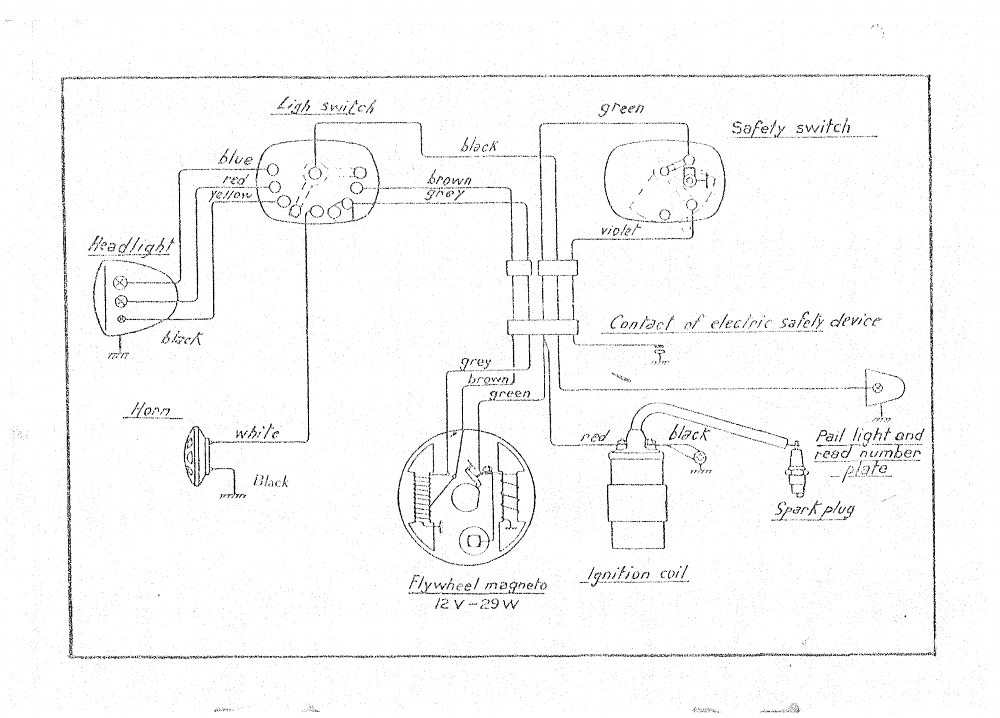 Ligh switch
green
Safety switch
black
blue
red
yellow
brown
grey
violet
Headlight
black
Contact of electric safety device
grey
brown
green
Horn
white
Black
red
black
Pail light and
read number
plate
Spark plug
Ignition coil
Flywheel magneto
12V-29W